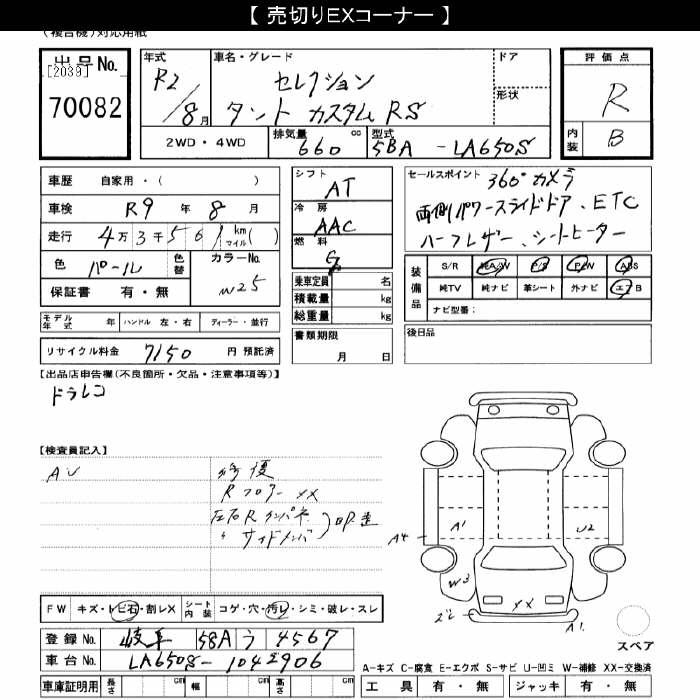 【 売切りEXコーナー 】
(複合機)対応用紙
出品No.
[2039]
70082
年式
R2/8月
車名・グレード
セレクション
タント カスタム RS
ドア
形状
評価点
R
内装
B
2WD・4WD
排気量
660 cc
型式
5BA - LA650S
車歴 自家用・( )
車検 R9 年 8 月
走行 4万3千561 km マイル( )
色 パール 色替 カラーNo. W25
保証書 有・無
シフト AT
冷房 AAC
燃料 G
乗車定員 名
積載量 kg
総重量 kg
セールスポイント 360°カメラ
両側パワースライドドア、ETC
ハーフレザー、シートヒーター
装備品
S/R 純A/W P/S P/W ABS
純TV 純ナビ 革シート 外ナビ エアB
ナビ型番:
モデル年式 年 ハンドル 左・右 ディーラー・並行
リサイクル料金 7150 円 預託済
書類期限
月 日
後日品
【出品店申告欄(不良箇所・欠品・注意事項等)】
ドラレコ
【検査員記入】
AU
修復
Rフロアー XX
左右Rインパネ
〃 サイドメンバ
A1
U2
A4
W3
XX
A1
FW キズ・トビ石・割レX シート内装 コゲ・穴・汚レ・シミ・破レ・スレ
スペア
登録No. 岐阜 58A う 4567
車台No. LA650S-1042906
A-キズ C-腐食 E-エクボ S-サビ U-凹ミ W-補修 XX-交換済
車庫証明用 長さ cm 幅 cm 高さ cm
工具 有・無 ジャッキ 有・無